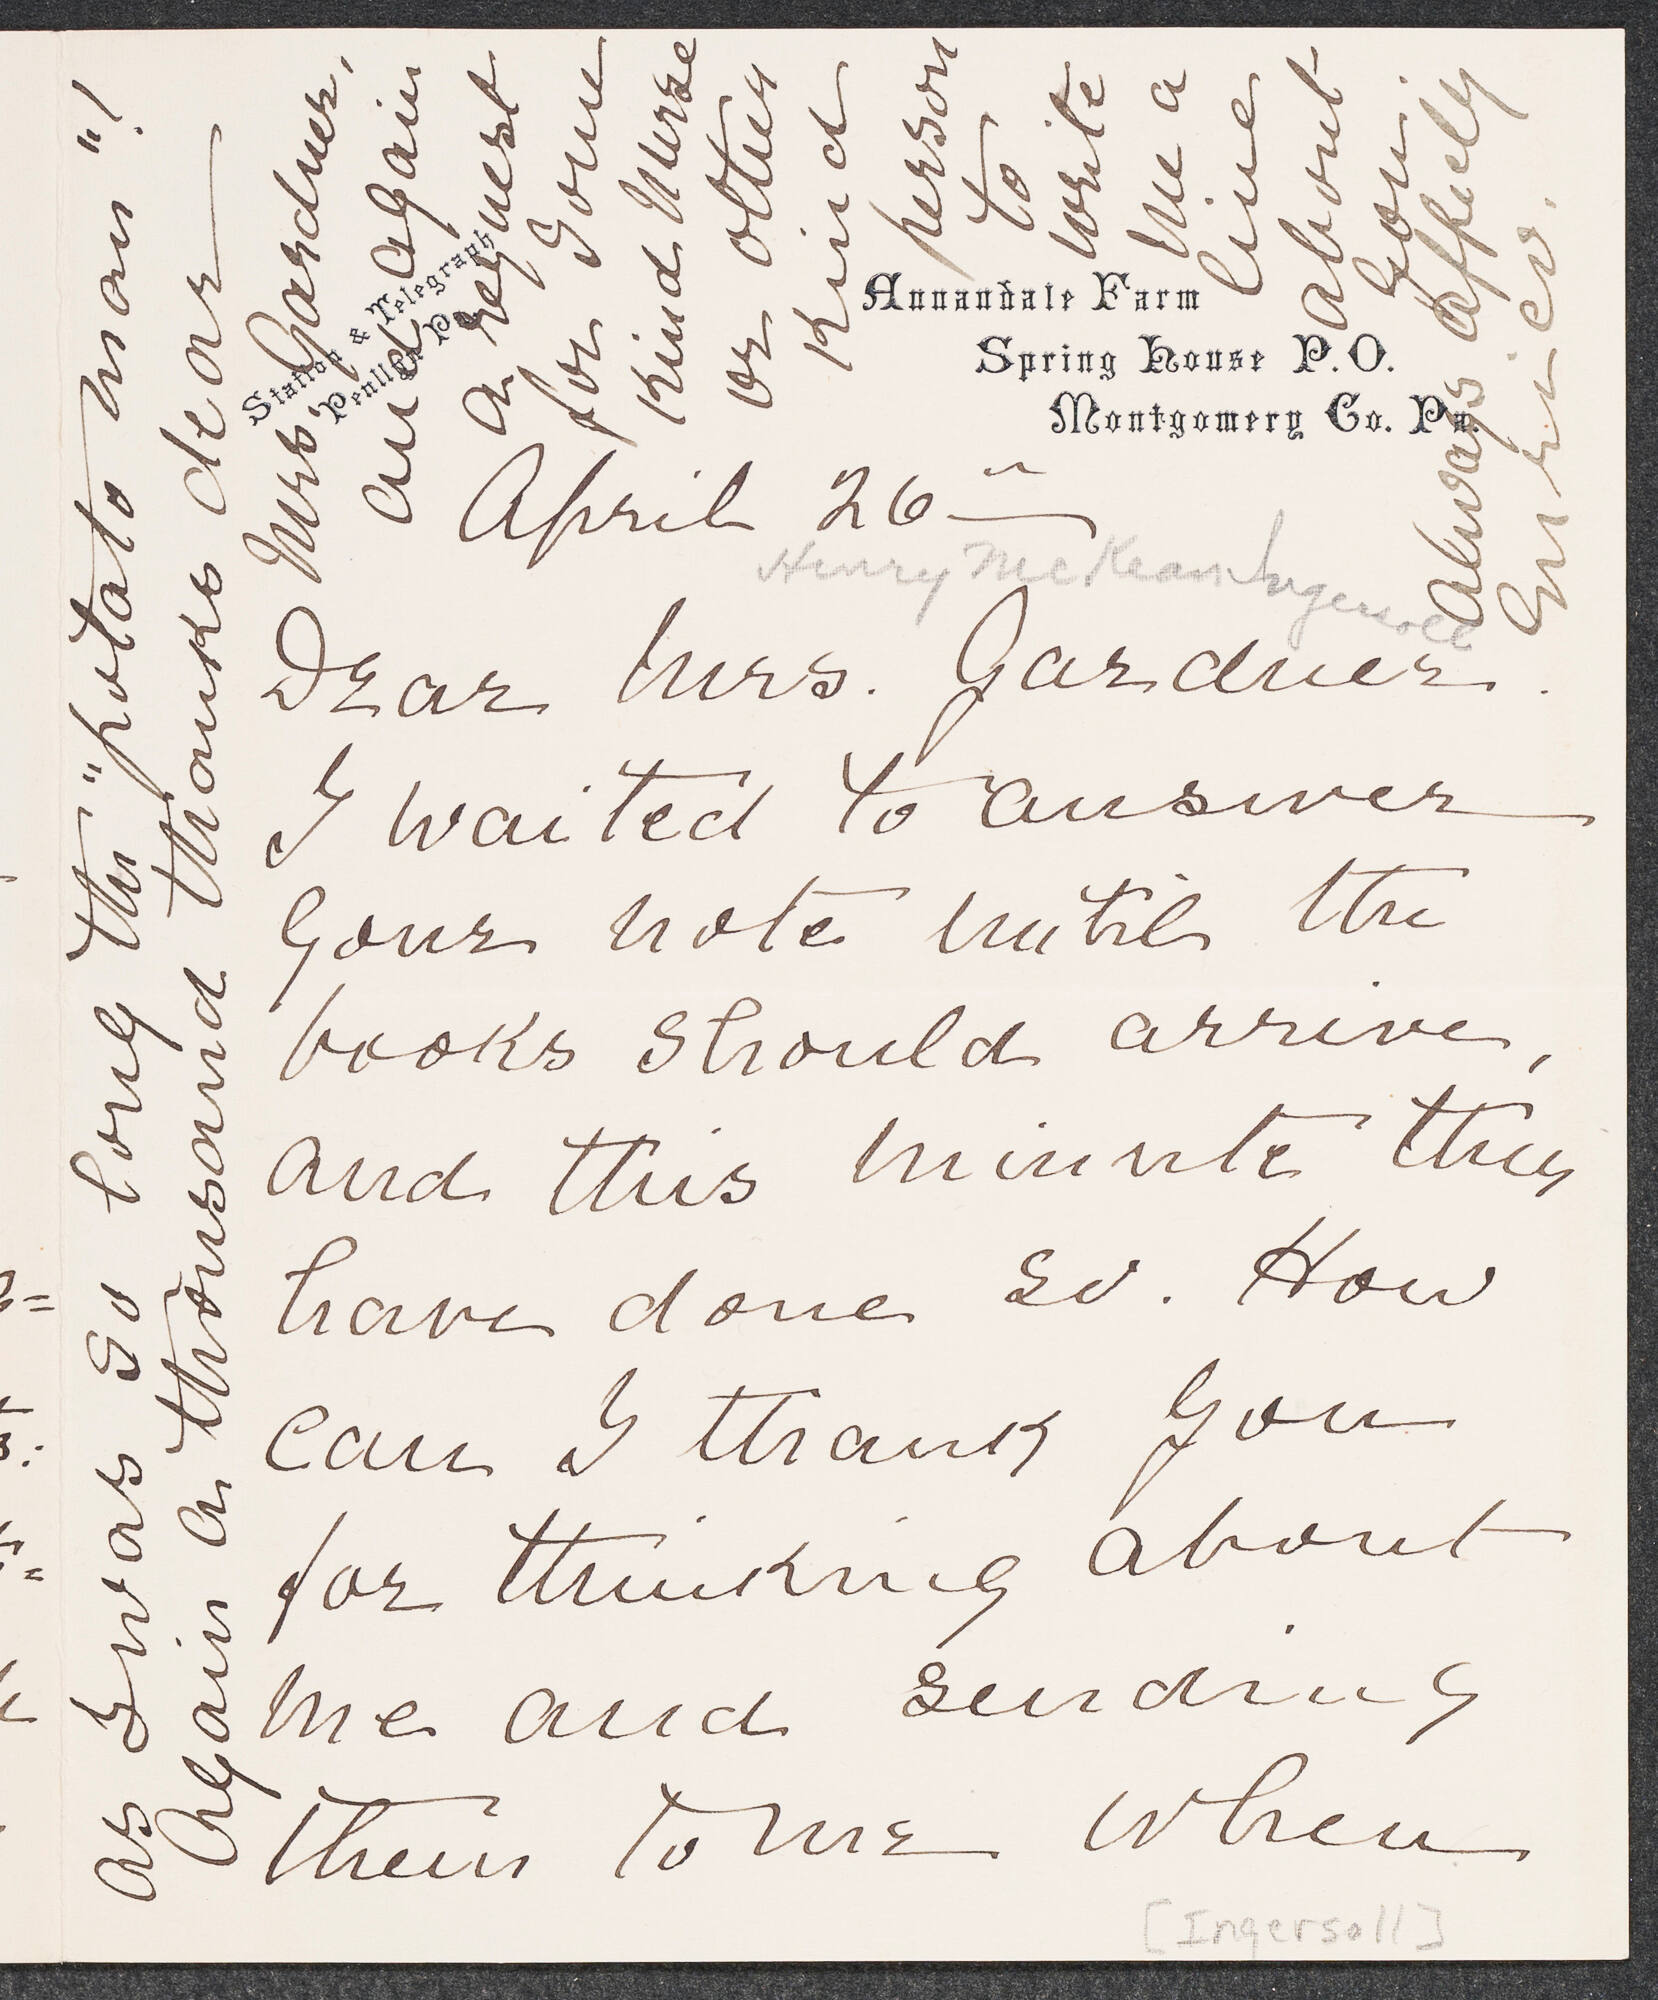 Station & Telegraph
Penllyn Pa.
Annandale Farm
Spring House P.O.
Montgomery Co. Pa.
April 26th
Henry McKean Ingersoll
Dear Mrs. Gardner.
I waited to answer
your note until the
books should arrive,
and this minute they
have done so. How
can I thank you
for thinking about
me and sending
them to me when
[Ingersoll]
as I was so long the "potato man"!
Again a thousand thanks dear
Mrs. Gardner,
and again
a request
for some
kind nurse
or other
kind
person
to
write
me a
line
about
you.
always affely